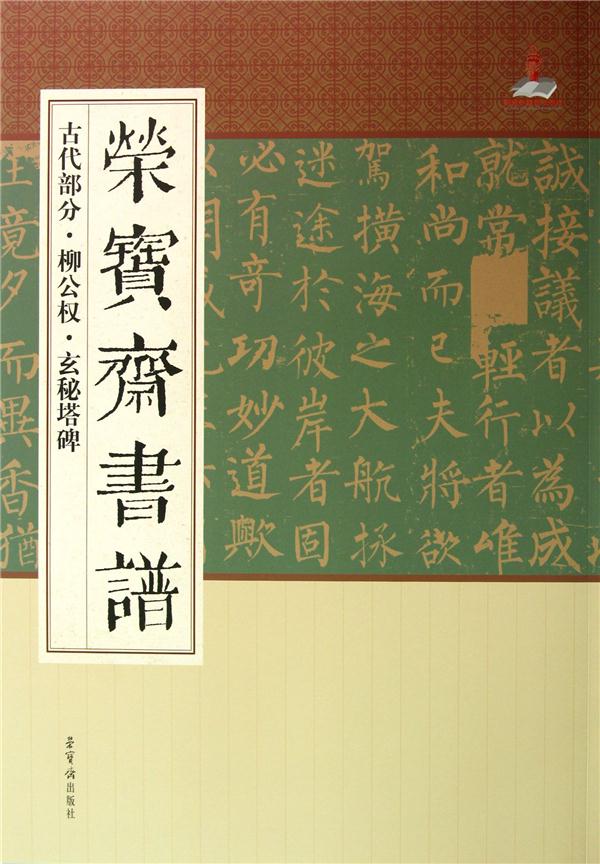 榮寶齋書譜
古代部分·柳公权·玄秘塔碑
誠接議者以為成
就常輕行者唯
和尚而已夫將欲
駕橫海之大航拯
迷途於彼岸者固
必有奇功妙道歟
生竟夕而異香猶
榮寶齋出版社